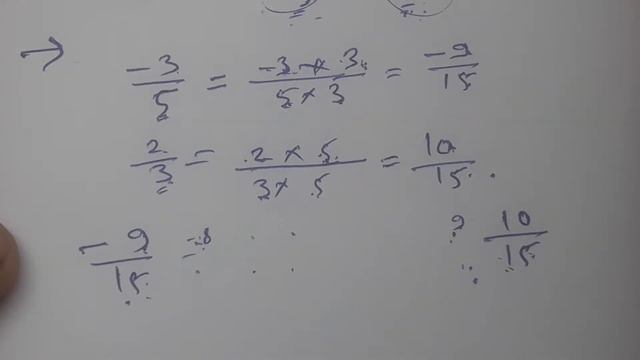 → -3/5 = -3 × 3/5 × 3 = -9/15
2/3 = 2 × 5/3 × 5 = 10/15.
-9/15 = -8 9 10/15